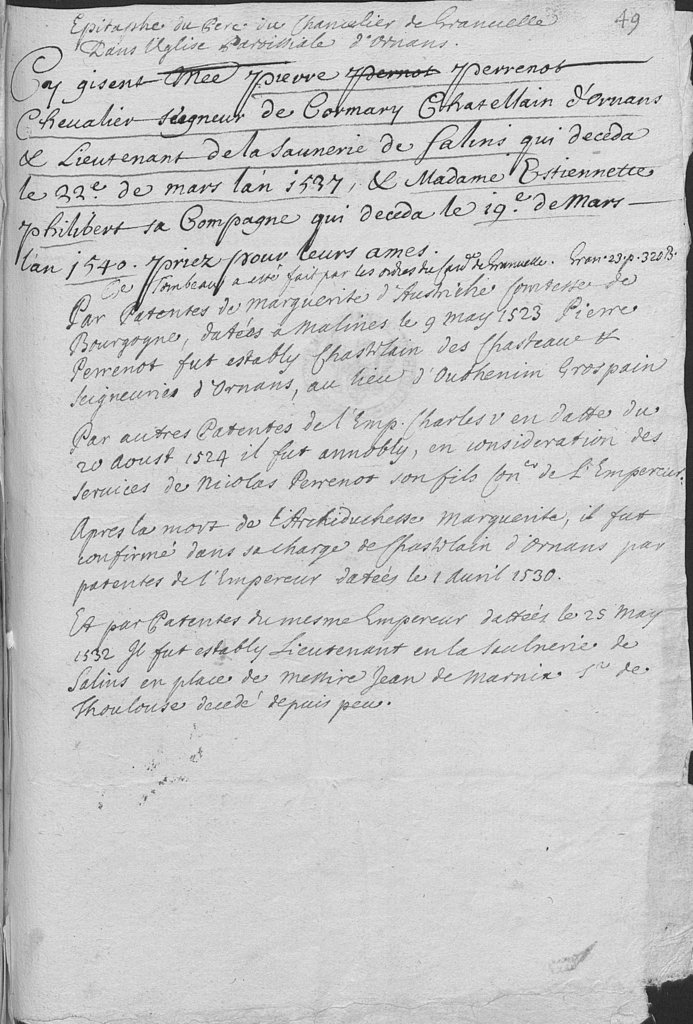 49
Epitaphe du Pere du Chancelier de Granvelle
Dans l'Eglise Paroissiale d'Ornans.
Cy gisent Mee Pierre Pernot Perrenot
Chevalier seigneur de Cormary Chatellain d'Ornans
& Lieutenant de la Saunerie de Salins qui deceda
le 22e. de mars l'an 1537, & Madame Estiennette
Philibert sa Compagne qui deceda le 19e. de Mars
l'an 1540. Priez pour leurs ames.
Ce Tombeau a esté fait par les ordres du Card. de Granvelle. Gran. 23. p. 320 B.
Par Patentes de Marguerite d'Austriche Comtesse de
Bourgogne, datées a Malines le 9 may 1523 Pierre
Perrenot fut estably Chastelain des Chasteau &
Seigneuries d'Ornans, au lieu d'Outhenin Grospain
Par autres Patentes de l'Emp. Charles V en datte du
20 Aoust 1524 il fut annobly, en consideration des
services de Nicolas Perrenot son fils Conler de L'Empereur.
Apres la mort de l'Archiduchesse Marguerite, il fut
confirmé dans sa charge de Chastelain d'Ornans par
patentes de l'Empereur datées le 1 Avril 1530.
Et par Patentes du mesme Empereur dattées le 25 May
1532 Il fut estably Lieutenant en la Saulnerie de
Salins en place de Messire Jean de Marnix Sr. de
Thoulouse decedé depuis peu.